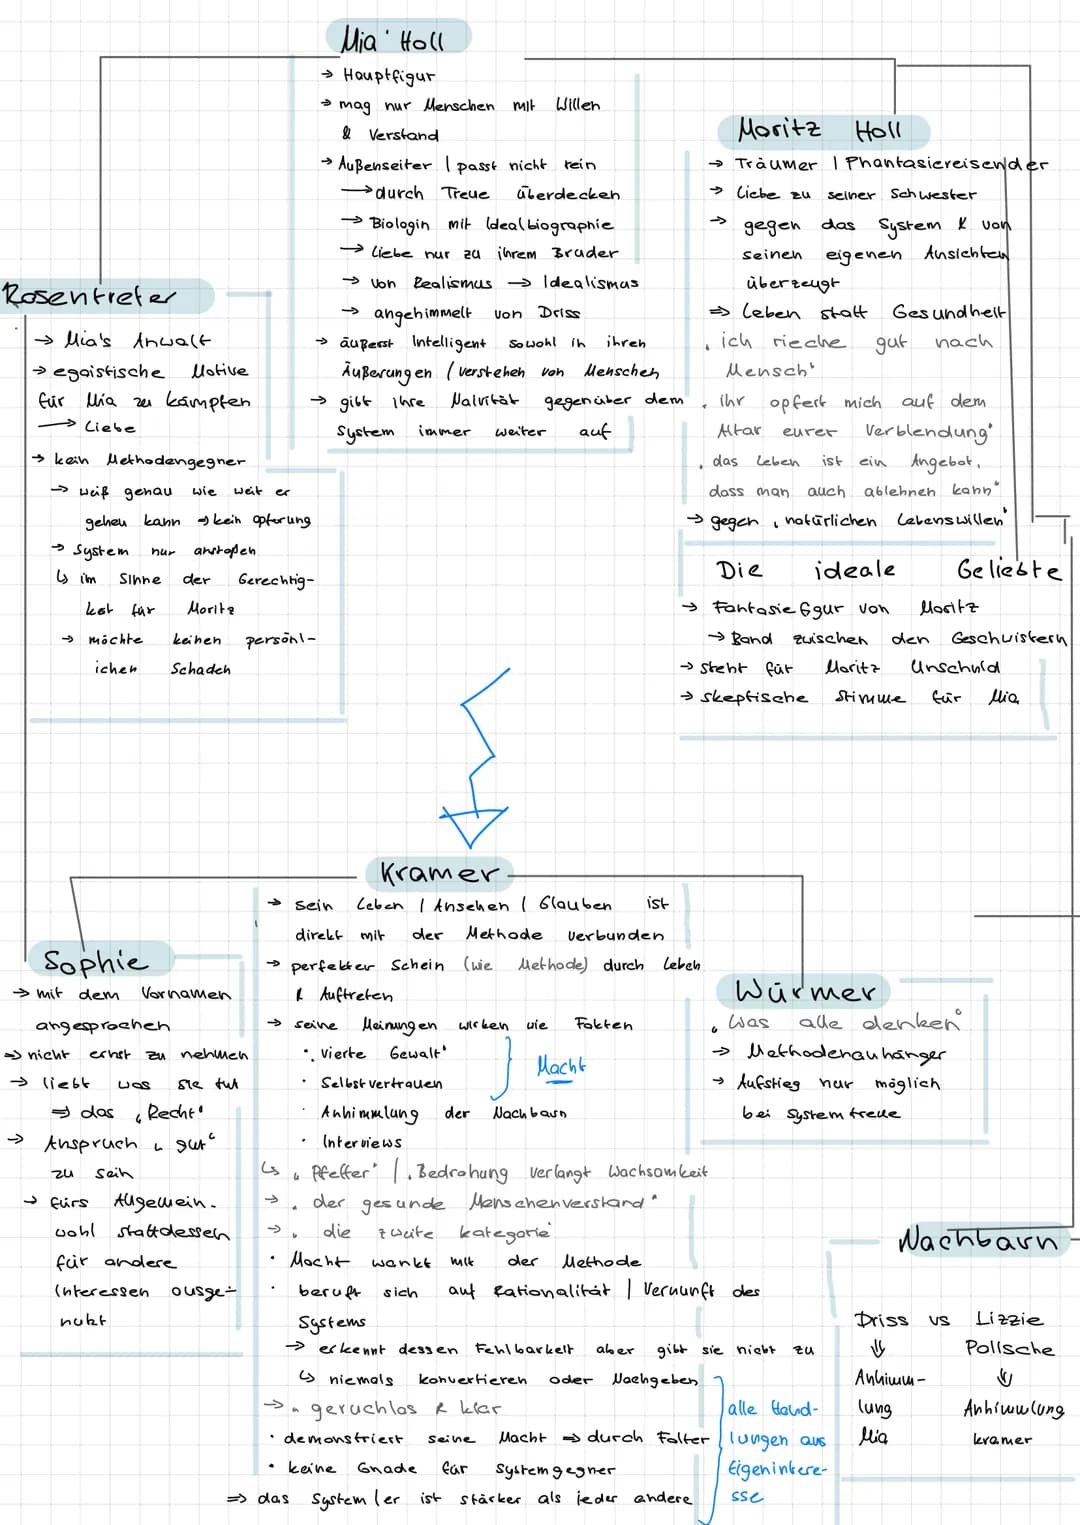 Mia Holl
→ Hauptfigur
→ mag nur Menschen mit Willen
& Verstand
→ Außenseiter | passt nicht rein
→ durch Treue überdecken
→ Biologin mit Idealbiographie
→ Liebe nur zu ihrem Bruder
→ von Realismus → Idealismus
→ angehimmelt von Driss
→ äußerst Intelligent sowohl in ihren
Äußerungen / verstehen von Menschen
→ gibt ihre Naivität gegenüber dem
System immer weiter auf
Moritz Holl
→ Träumer | Phantasiereisender
→ Liebe zu seiner Schwester
→ gegen das System & von
seinen eigenen Ansichten
überzeugt
⇒ Leben statt Gesundheit
„ich rieche gut nach
Mensch"
„ihr opfert mich auf dem
Altar eurer Verblendung"
„das Leben ist ein Angebot,
dass man auch ablehnen kann"
→ gegen „natürlichen Lebenswillen"
Die ideale Geliebte
→ Fantasiefigur von Moritz
→ Band zwischen den Geschwistern
→ steht für Moritz Unschuld
→ skeptische Stimme für Mia
Rosentreter
→ Mia's Anwalt
→ egoistische Motive
für Mia zu kämpfen
→ Liebe
→ kein Methodengegner
→ weiß genau wie weit er
gehen kann → kein opferung
→ System nur anstoßen
↳ im Sinne der Gerechtig-
keit für Moritz
→ möchte keinen persönl-
ichen Schaden
Kramer
→ sein Leben | Ansehen | Glauben ist
direkt mit der Methode verbunden
→ perfekter Schein (wie Methode) durch Leben
& Auftreten
→ seine Meinungen wirken wie Fakten
• „Vierte Gewalt"
• Selbstvertrauen
• Anhimmlung der Nachbarn
• Interviews
Macht
↳ „Pfeffer" | „Bedrohung verlangt Wachsamkeit
→ „der gesunde Menschenverstand"
→ „die zweite kategorie"
• Macht wankt mit der Methode
• beruft sich auf Rationalität | Vernunft des
Systems
→ erkennt dessen Fehlbarkeit aber gibt sie nicht zu
↳ niemals konvertieren oder Nachgeben
→ „geruchlos & klar
• demonstriert seine Macht ⇒ durch Folter
• keine Gnade für Systemgegner
⇒ das System / er ist stärker als jeder andere
alle Hand-
lungen aus
Eigenintere-
sse
Sophie
→ mit dem Vornamen
angesprochen
⇒ nicht ernst zu nehmen
→ liebt was sie tut
⇒ das „Recht"
→ Anspruch „gut"
zu sein
→ fürs Allgemein-
wohl stattdessen
für andere
Interessen ausge-
nutzt
Würmer
„Was alle denken"
→ Methodenanhänger
→ Aufstieg nur möglich
bei Systemtreue
Nachbarn
Driss vs Lizzie
Pollsche
⇓ ⇓
Anhimm-
lung
Mia
Anhimmlung
kramer